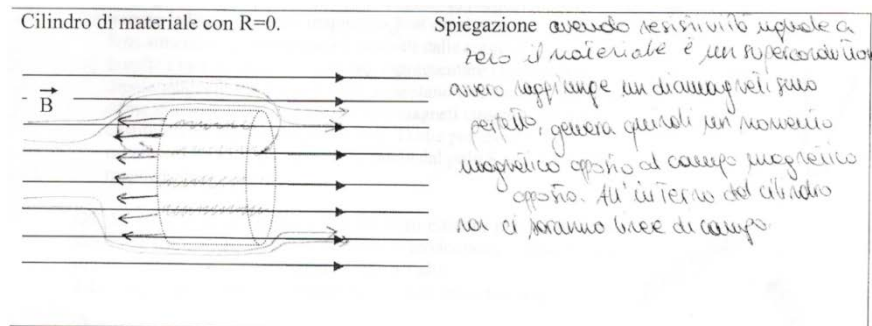 Cilindro di materiale con R=0.
B
Spiegazione avendo resistività uguale a
zero il materiale è un superconduttore
ovvero raggiunge un diamagnetismo
perfetto, genera quindi un momento
magnetico opposto al campo magnetico
opposto. All'interno del cilindro
non ci saranno linee di campo.